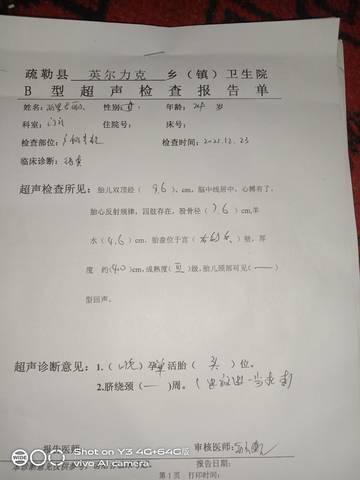 疏勒县 英尔力克 乡(镇)卫生院
B 型 超 声 检 查 报 告 单
姓名: 性别:女 年龄: 岁
科室:门诊 住院号: 床号:
检查部位: 检查时间:2022.12.23
临床诊断:
超声检查所见: 胎儿双顶经(9.6)cm,脑中线居中,心搏有了,
胎心反射规律,四肢存在,股骨径(7.6)cm,羊
水(4.6)cm,胎盘位于宫( )壁,厚
度 约(4.0)cm,成熟度(Ⅱ)级,胎儿颈部可见(—)
型回声。
超声诊断意见:1.(晚)孕单活胎(头)位。
2.脐绕颈(—)周。
报告医师: 审核医师:
本诊断意见仅供参考, 报告日期:
第 1 页 打印时间:
Shot on Y3 4G+64G版
vivo AI camera